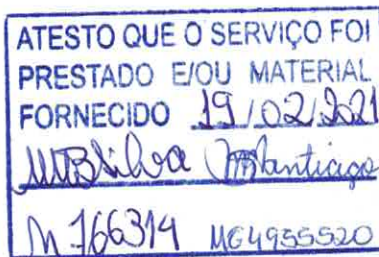 ATESTO QUE O SERVIÇO FOI
PRESTADO E/OU MATERIAL
FORNECIDO 19/02/2021
MTBSilva Santiago
M 766314 MG4955520